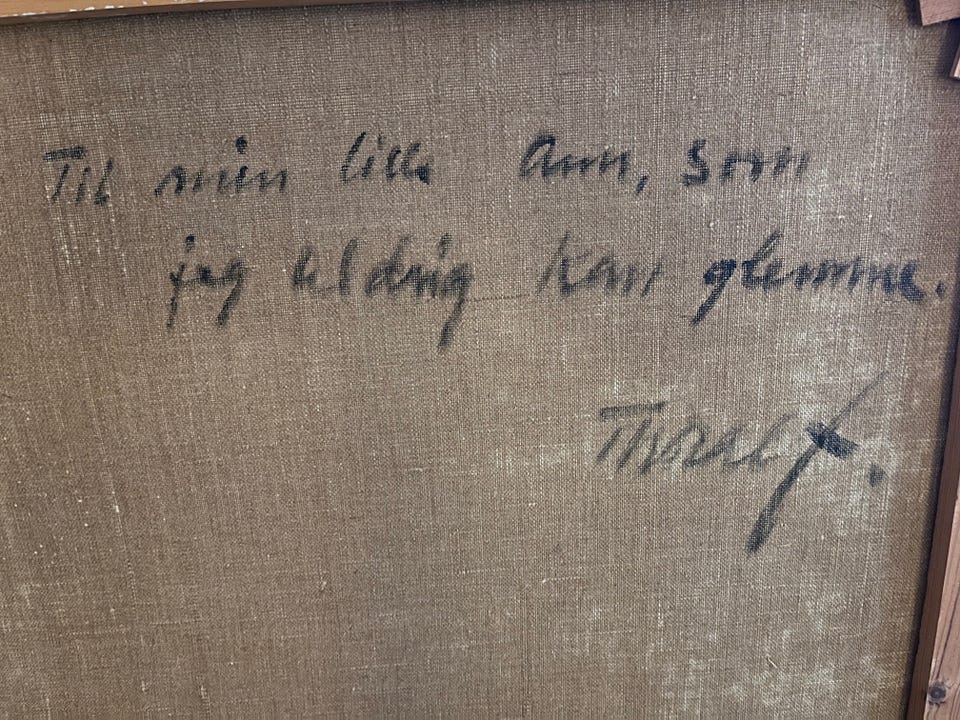 Til min lille Ann, som
jeg aldrig kan glemme.